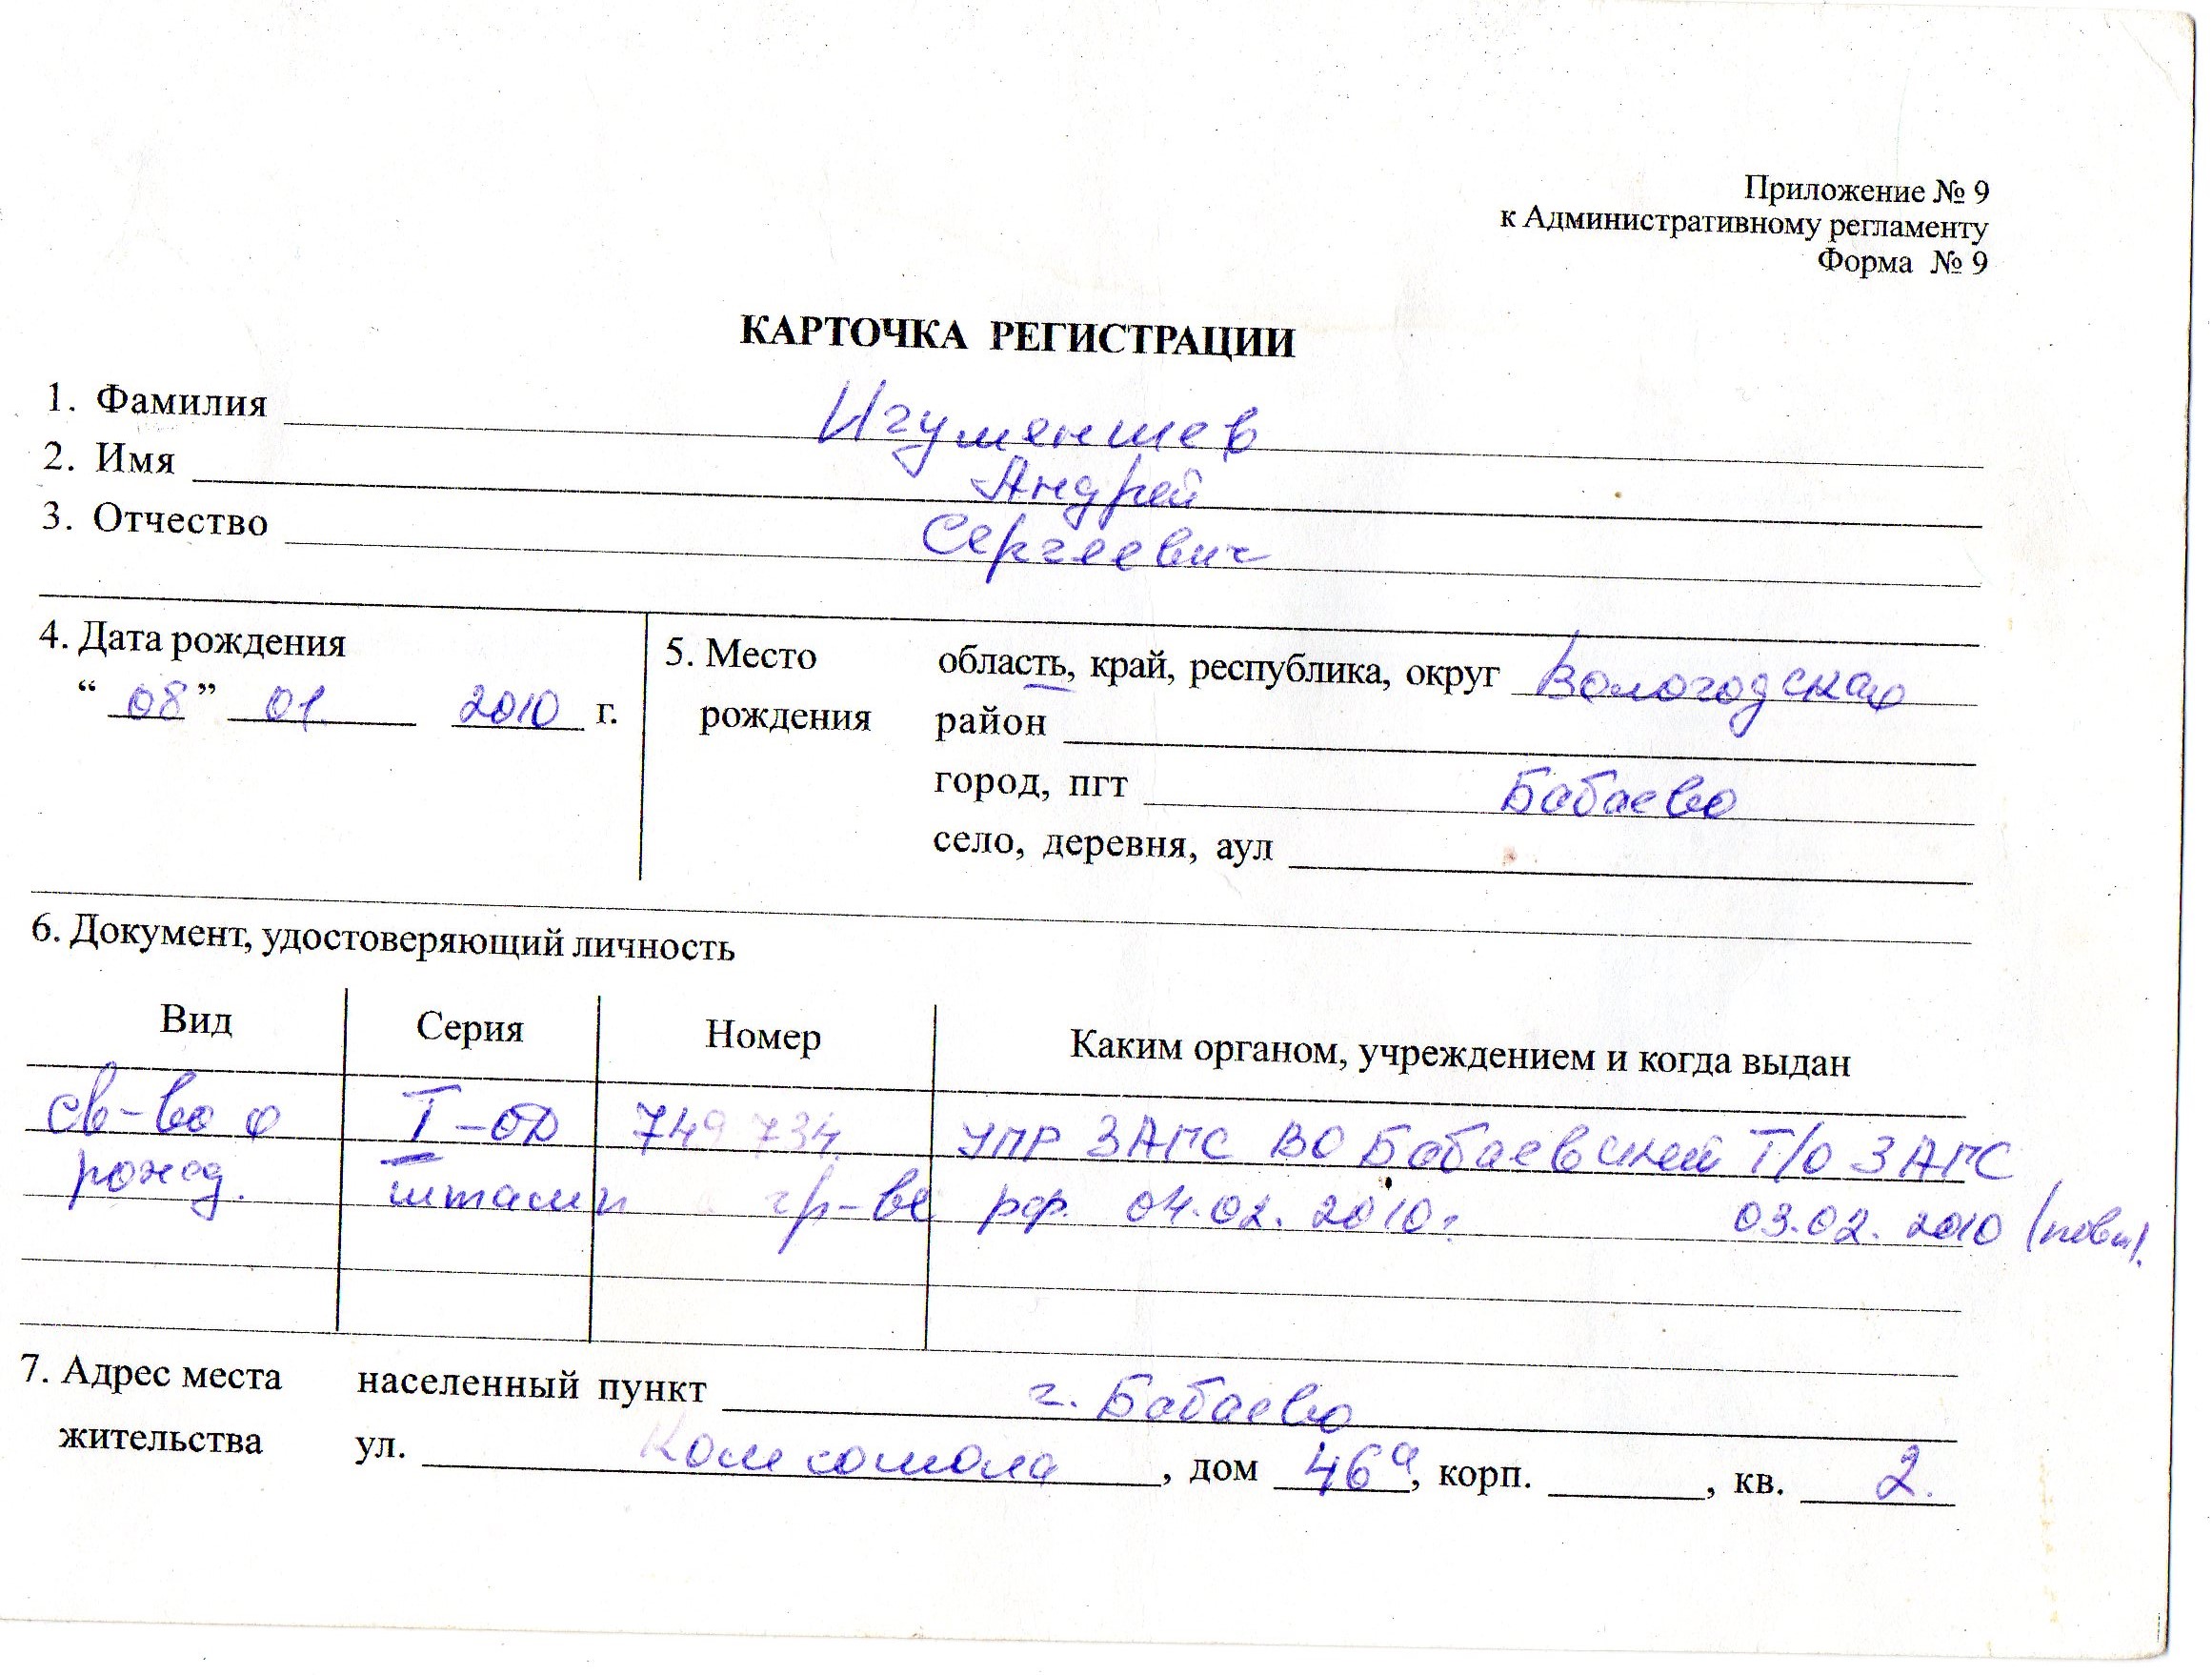 Приложение № 9
к Административному регламенту
Форма № 9
КАРТОЧКА РЕГИСТРАЦИИ
1. Фамилия Игуменшев
2. Имя Андрей
3. Отчество Сергеевич
4. Дата рождения
“ 08 ” 01. 2010 г.
5. Место рождения
область, край, республика, округ Вологодская
район
город, пгт Бабаево
село, деревня, аул
6. Документ, удостоверяющий личность
Вид Серия Номер Каким органом, учреждением и когда выдан
св-во о I-ОД 749 734 УПР ЗАГС ВО Бабаевский Т/О ЗАГС
рожд. штамп гр-ве РФ. 04.02.2010г 03.02.2010
7. Адрес места жительства
населенный пункт г. Бабаево
ул. Комсомола, дом 46а, корп. , кв. 2.